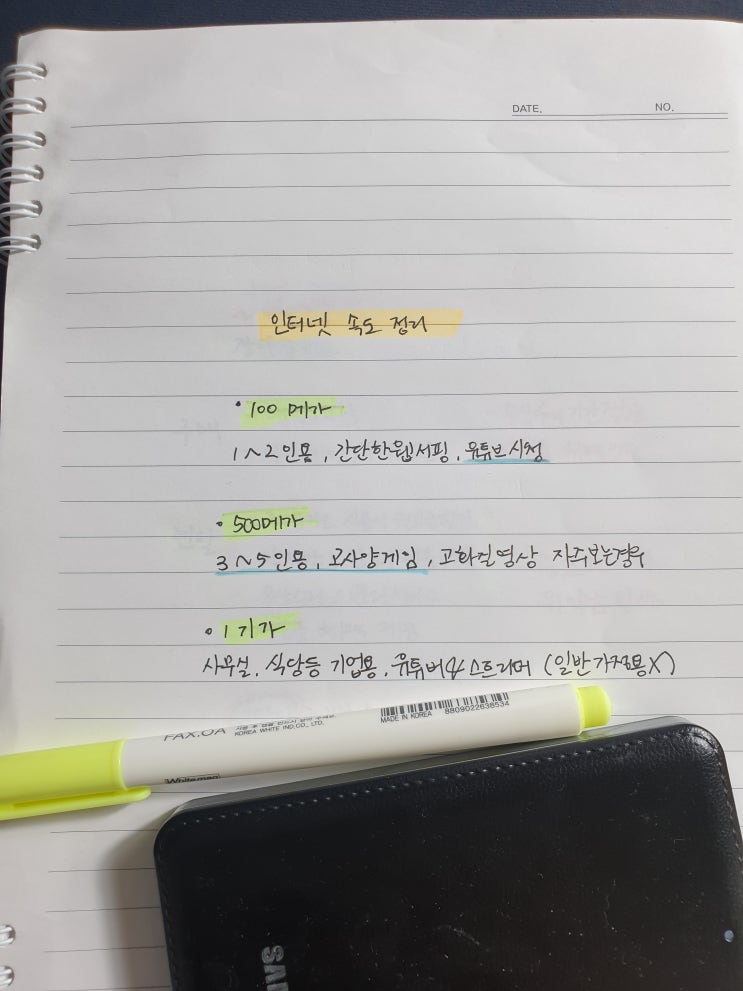 DATE.
NO.
인터넷 속도 정리
• 100 메가
1~2인용, 간단한웹서핑, 유튜브시청
• 500메가
3~5인용, 고사양게임, 고화질영상 자주보는경우
• 1기가
사무실, 식당등 기업용, 유튜버&스트리머 (일반가정용X)
FAX.OA
KOREA WHITE IND.CO., LTD.
MADE IN KOREA
8809022638534
Whiteman
SAM